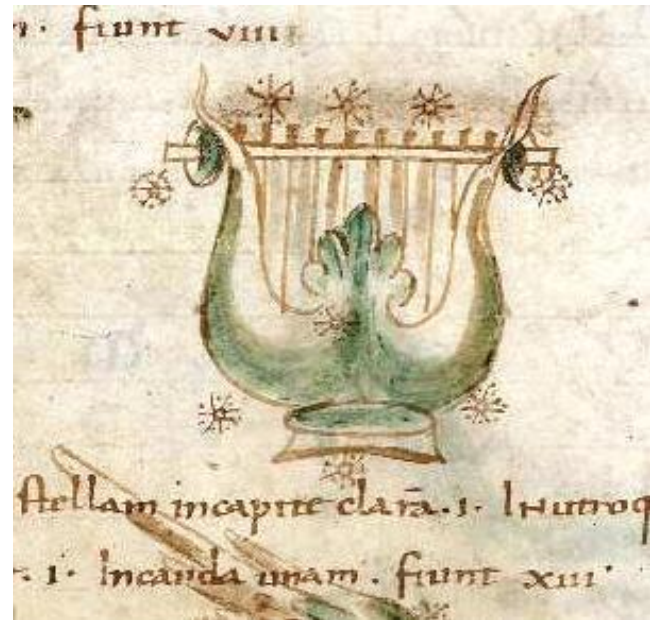 . fiunt viiii
Stellam incapite clarā . i . Inutroq
. i . Incauda unam . fiunt xiii